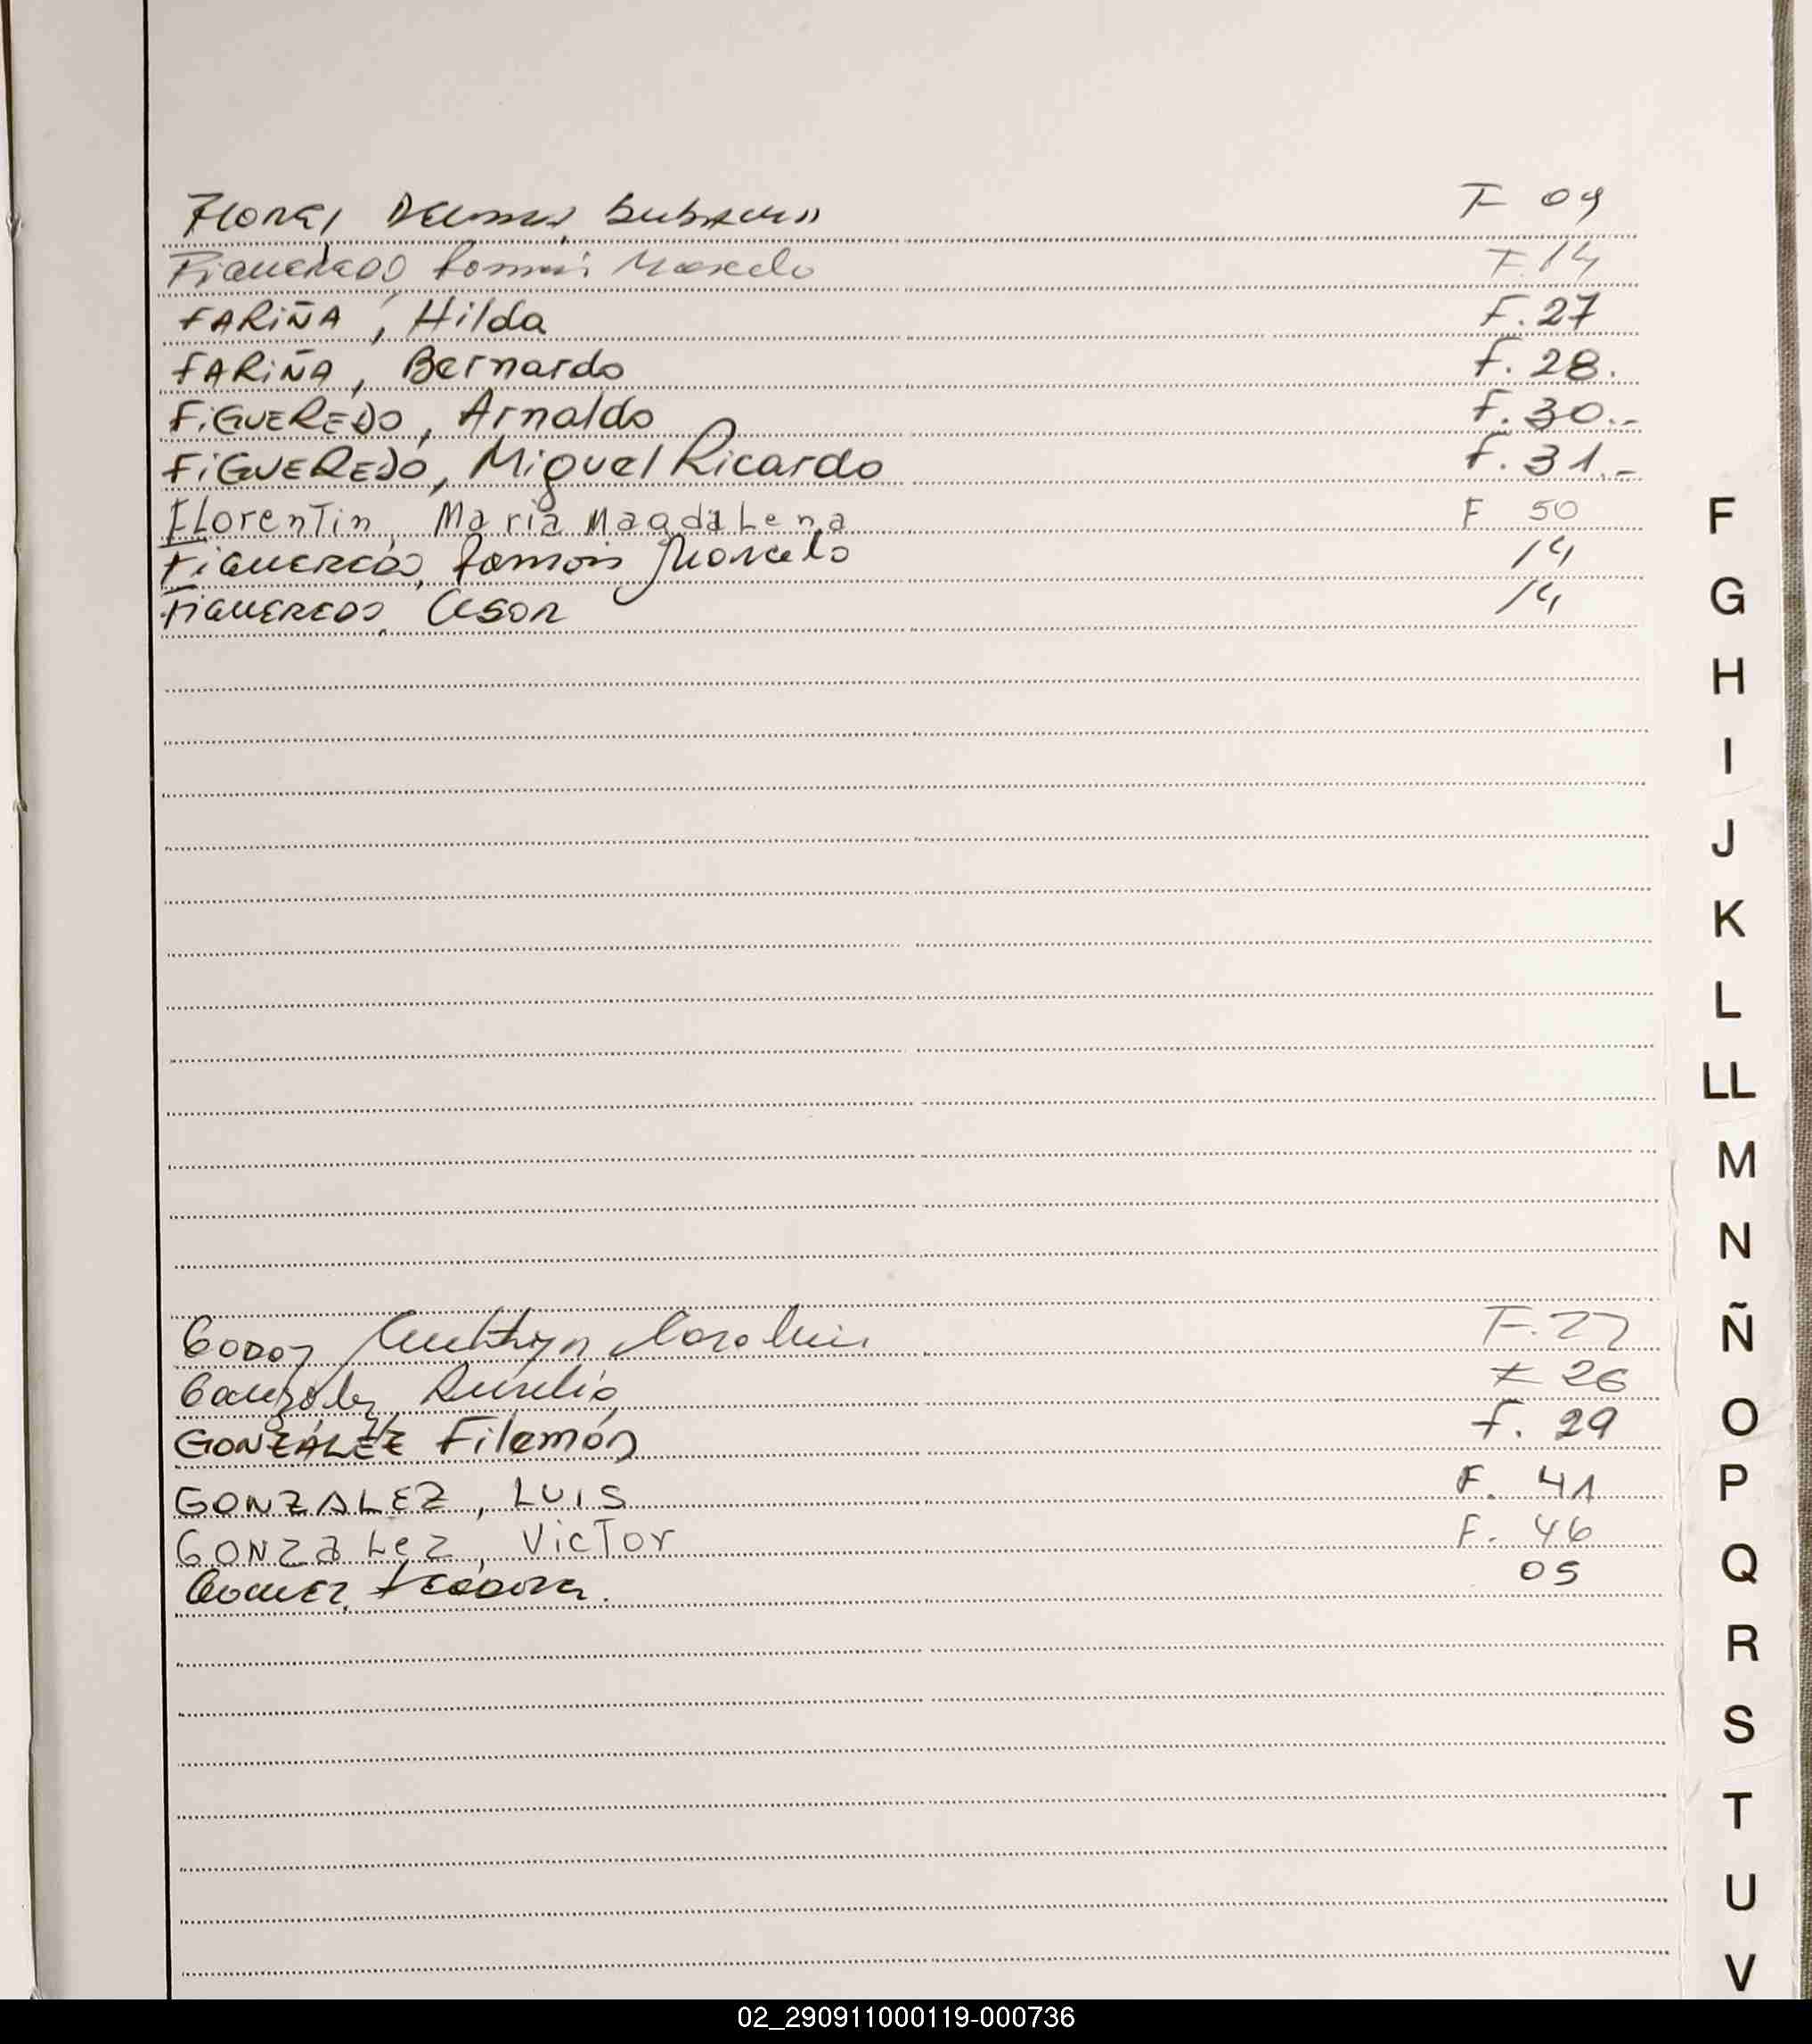 Flores F 09
Figueredo Ramón Marcelo F.14
FARiÑA, Hilda F.27
FARiÑA, Bernardo F.28.
FiGUEREDO, Arnaldo F.30.-
FiGUEREDO, Miguel Ricardo F.31.-
FLorenTin, Maria MagdaLena F 50
FiGUEREDO, Ramón Marcelo 14
FiGUEREDO, Cesar 14
Godoy F.22
Gonzalez Aurelio F 26
GONZÁLEZ Filemón F. 29
GONZALEZ, LUIS F. 41
GONZaLeZ, VicTor F. 46
Gomez, Teodora. 05
F
G
H
I
J
K
L
LL
M
N
Ñ
O
P
Q
R
S
T
U
V
02_290911000119-000736